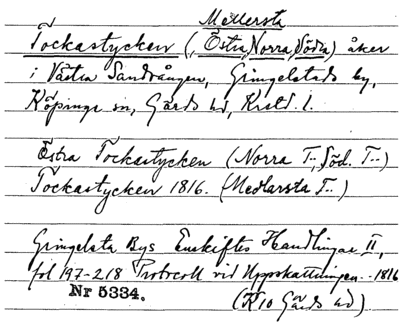 Mellersta
Tockastycken (, Östra, Norra, Södra) åker
i Västra Sandvången, Gringelstads by,
Köpinge sn, Gärds hd, Krstd. l.
Östra Tockastycken (Norra T-, Söd. T-)
Tockastycken 1816. (Medlarsta T-)
Gringelsta Bys Enskiftes Handlingar II,
fol 197-218 Protocoll vid Uppskattningen - 1816
Nr 5334.
(K10 Gärds hd)